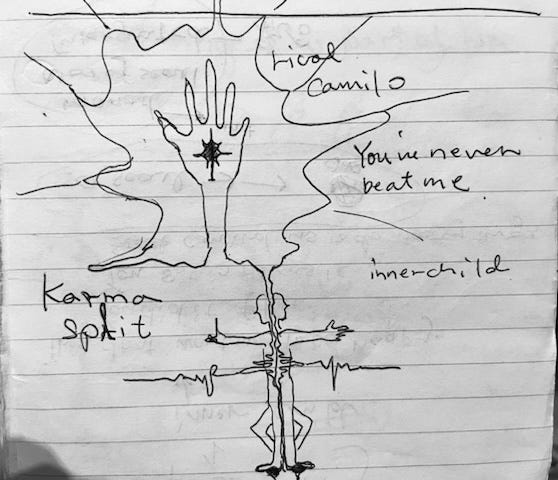 rival
Camilo
You've never
beat me
inner child
Karma
split